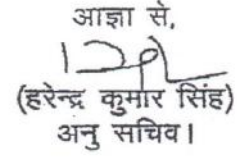 आज्ञा से,
(हरेन्द्र कुमार सिंह)
अनु सचिव।